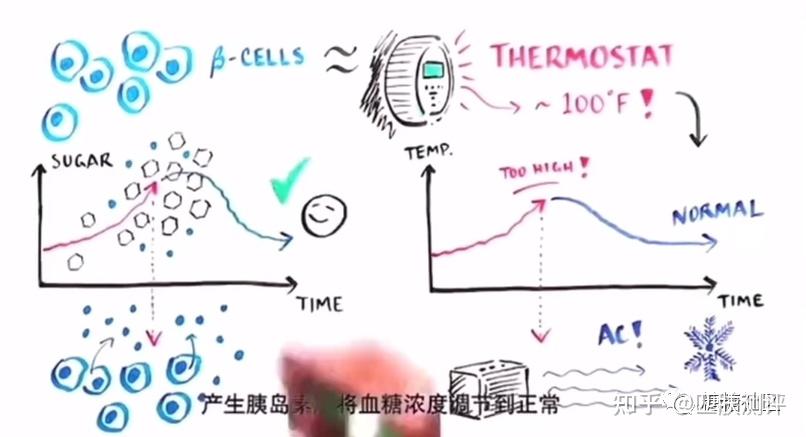 β-CELLS ≈ THERMOSTAT
~ 100°F!
SUGAR
TIME
TEMP.
TOO HIGH!
NORMAL
TIME
AC!
产生胰岛素，将血糖浓度调节到正常
知乎